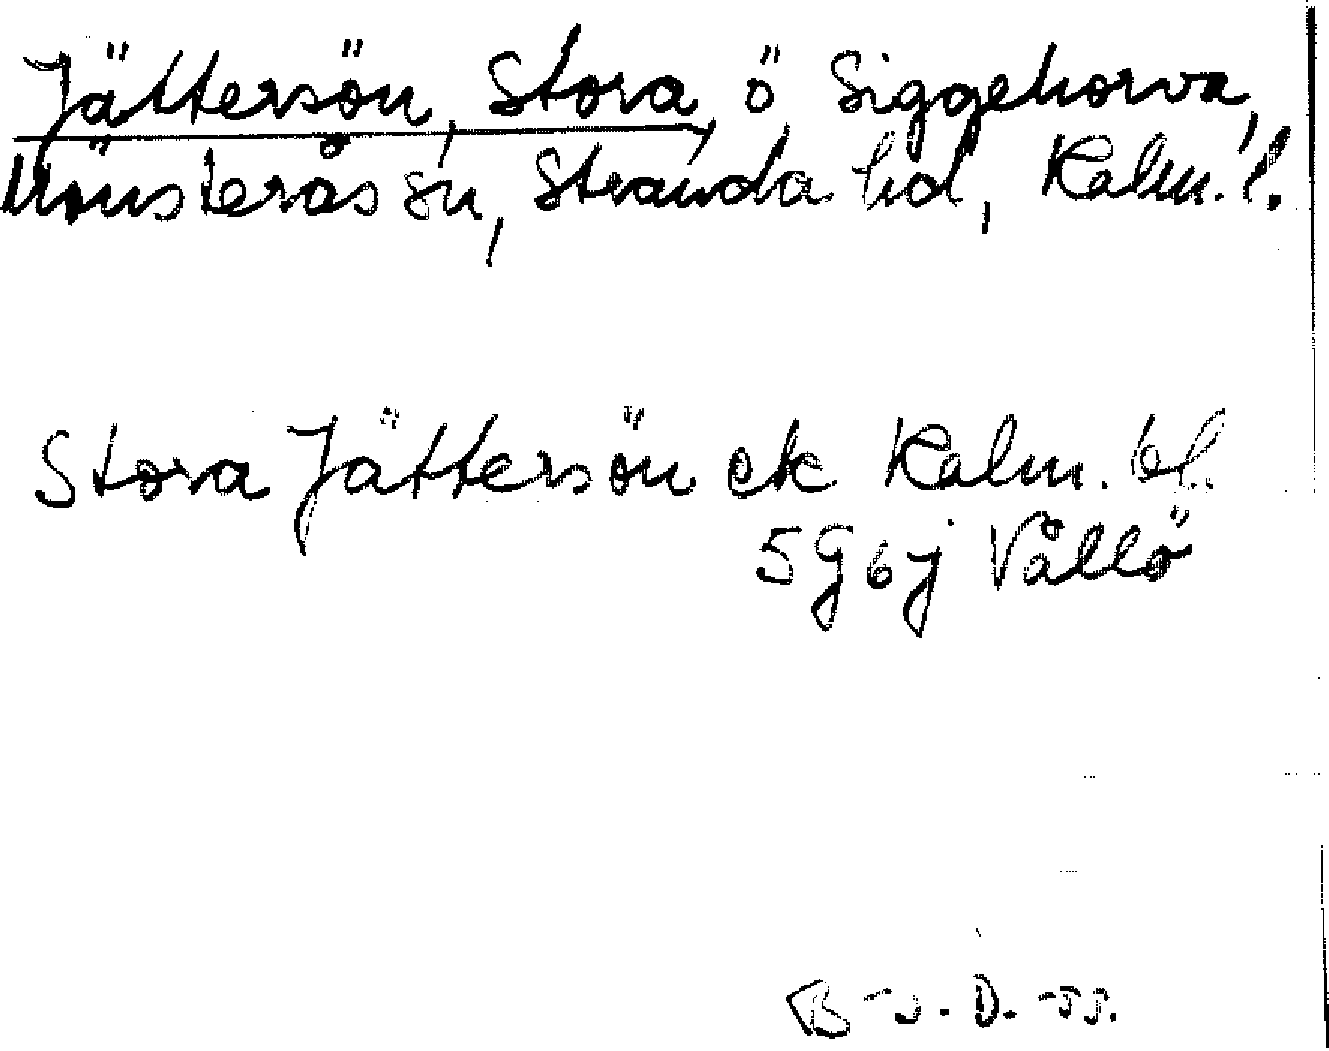 Jättersön, Stora, ö Siggehorva,
Mönsterås sn, Stranda hd, Kalm. l.
Stora Jättersön ek Kalm. bl.
5 G 6 j Vållö
B-J. D. -55.